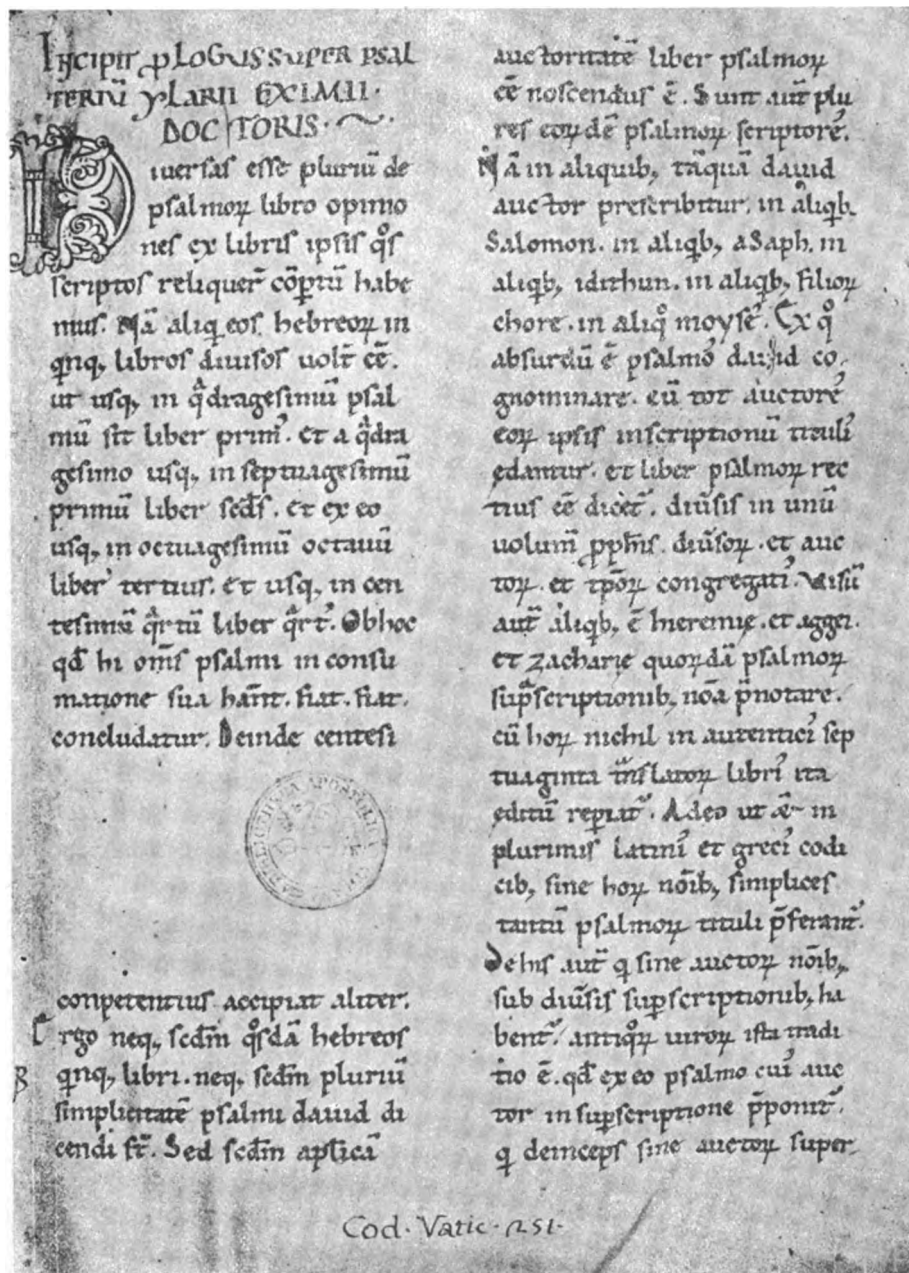 Incipit ꝓLOGUS SUPER PSAL
TERIŪ yLARII EXIMII·
DOCTORIS·~
Diuersas esse pluriū de
psalmoꝝ libro opinio
nes ex libris ipsis qͦs
scriptos reliquer̄ cōꝑtū habe
mus. Nā aliq eos hebreoꝝ in
qnq, libros diuisos uolt̄ eē.
ut usq, in qͣdragesimū psal
mū sit liber primꝰ. et a qͣdra
gesimo usq, in septuagesimū
primū liber scd̄s. et ex eo
usq, in octuagesimū octauū
liber tertius. et usq, in cen
tesimū qͣrtū liber qͣrtꝰ. Obhoc
qd̄ hi om̄s psalmi in consu
matione sua hant̄. fiat. fiat.
concludatur. Deinde centesi
conpetentius accipiat aliter.
Ergo neq, scdm̄ qͦsdā hebreos
qnq, libri. neq, scdm̄ pluriū
simplicitatē psalmi dauid di
cendi st̄. Sed scdm̄ aplicā
auctoritatē liber psalmoꝝ
eē noscendus ē. Sunt aut̄ plu
res eoꝝdē psalmoꝝ scriptoreˢ.
Nā in aliquib, tāquā dauid
auctor prescribitur. in aliqb,
Salomon. in aliqb, aSaph. in
aliqb, idithun. in aliqb, filioꝝ
chore. in aliqͦ moyseˢ. Ex qͦ
absurdū ē psalmoˢ dauid co
gnominare. cū tot auctoreˢ
eoꝝ ipsis inscriptionū tituliˢ
edantur. et liber psalmoꝝ rec
tius eē dicet̄. diūsis in unū
uolum̄ ꝓph̄iis. diūsoꝝ. et auc
toꝝ. et tp̄oꝝ congregatiˢ. Uisū
aut̄ aliqb, ē hieremię. et aggei.
et zacharię quoꝝdā psalmoꝝ
suꝑscriptionib, nōa p̄notare.
cū hoꝝ nichil in autenticiˢ sep
tuaginta tn̄slatoꝝ libriˢ ita
editū reꝑiat̄. Adeo ut &̄ in
plurimis latiniˢ et greciˢ codi
cib, sine hoꝝ nōib, simplices
tantū psalmoꝝ tituli p̄ferant̄.
De his aut̄ q sine auctoꝝ nōib,
sub diūsis suꝑscriptionib, ha
bent̄. antiqͦꝝ uiroꝝ ista tradi
tio ē. qd̄ ex eo psalmo cuiˢ auc
tor in suꝑscriptione p̄ponit̄.
q deinceps sine auctoꝝ super
Cod. Vatic. 251.